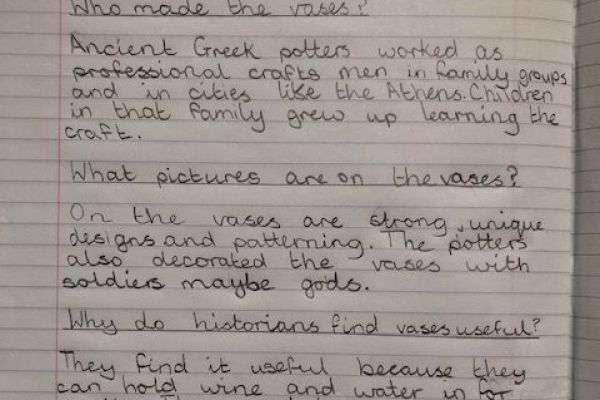 Who made the vases?
Ancient Greek potters worked as
professional crafts men in family groups
and in cities like the Athens. Children
in that family grew up learning the
craft.
What pictures are on the vases?
On the vases are strong, unique
designs and patterning. The potters
also decorated the vases with
soldiers maybe gods.
Why do historians find vases useful?
They find it useful because they
can hold wine and water in for